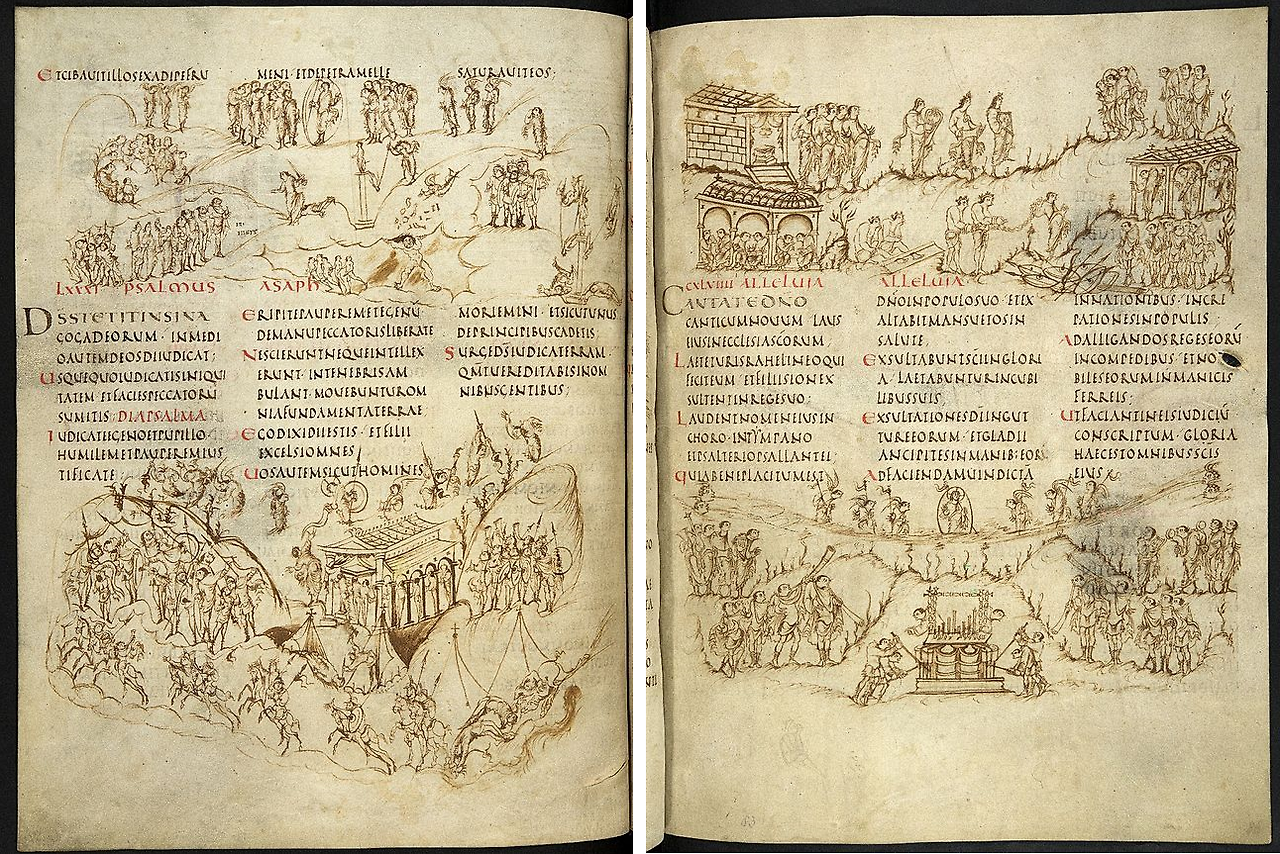 ETCIBAUITILLOSEXADIPEFRU MENI·ETDEPETRAMELLE SATURAUITEOS;
LXXXI PSALMUS ASAPH
DSSTETITINSINA
GOGADEORUM·INMEDI
OAUTEMDEOSDIIUDICAT;
USQUEQUOIUDICATISINIQUI
TATEM·ETFACIESPECCATORU
SUMITIS·DIAPSALMA
IUDICATEEGENOETPUPILLO·
HUMILEMETPAUPEREMIUS
TIFICATE;
ERIPITEPAUPEREMETEGENU
DEMANUPECCATORISLIBERATE
NESCIERUNTNEQUEINTELLEX
ERUNT·INTENEBRISAM
BULANT·MOUEBUNTUROM
NIAFUNDAMENTATERRAE
EGODIXIDIIESTIS·ETFILII
EXCELSIOMNES
UOSAUTEMSICUTHOMINES
MORIEMINI·ETSICUTUNUS
DEPRINCIPIBUSCADETIS;
SURGEDSIUDICATERRAM·
QMTUEREDITABISINOM
NIBUSGENTIBUS;
CXLVIIII ALLELUIA ALLELUIA·
CANTATEDNO
CANTICUMNOUUM·LAUS
EIUSINECCLESIASCORUM;
LAETETURISRAHELINEOQUI
FECITEUM·ETFILIISIONEX
SULTENTINREGESUO;
LAUDENTNOMENEIUSIN
CHORO·INTYMPANO
ETPSALTERIOPSALLANTEI;
QUIABENEPLACITUMEST
DNOINPOPULOSUO·ETEX
ALTABITMANSUETOSIN
SALUTE;
EXSULTABUNTSCIINGLORI
A·LAETABUNTURINCUBI
LIBUSSUIS;
EXSULTATIONESDIINGUT
TUREEORUM·ETGLADII
ANCIPITESINMANIB:EOR
ADFACIENDAMUINDICTA
INNATIONIBUS·INCRE
PATIONESINPOPULIS
ADALLIGANDOSREGESEORU
INCOMPEDIBUS·ETNO
BILESEORUMINMANICIS
FERREIS;
UTFACIANTINEISIUDICIU
CONSCRIPTUM·GLORIA
HAECESTOMNIBUSSCIS
EIUS